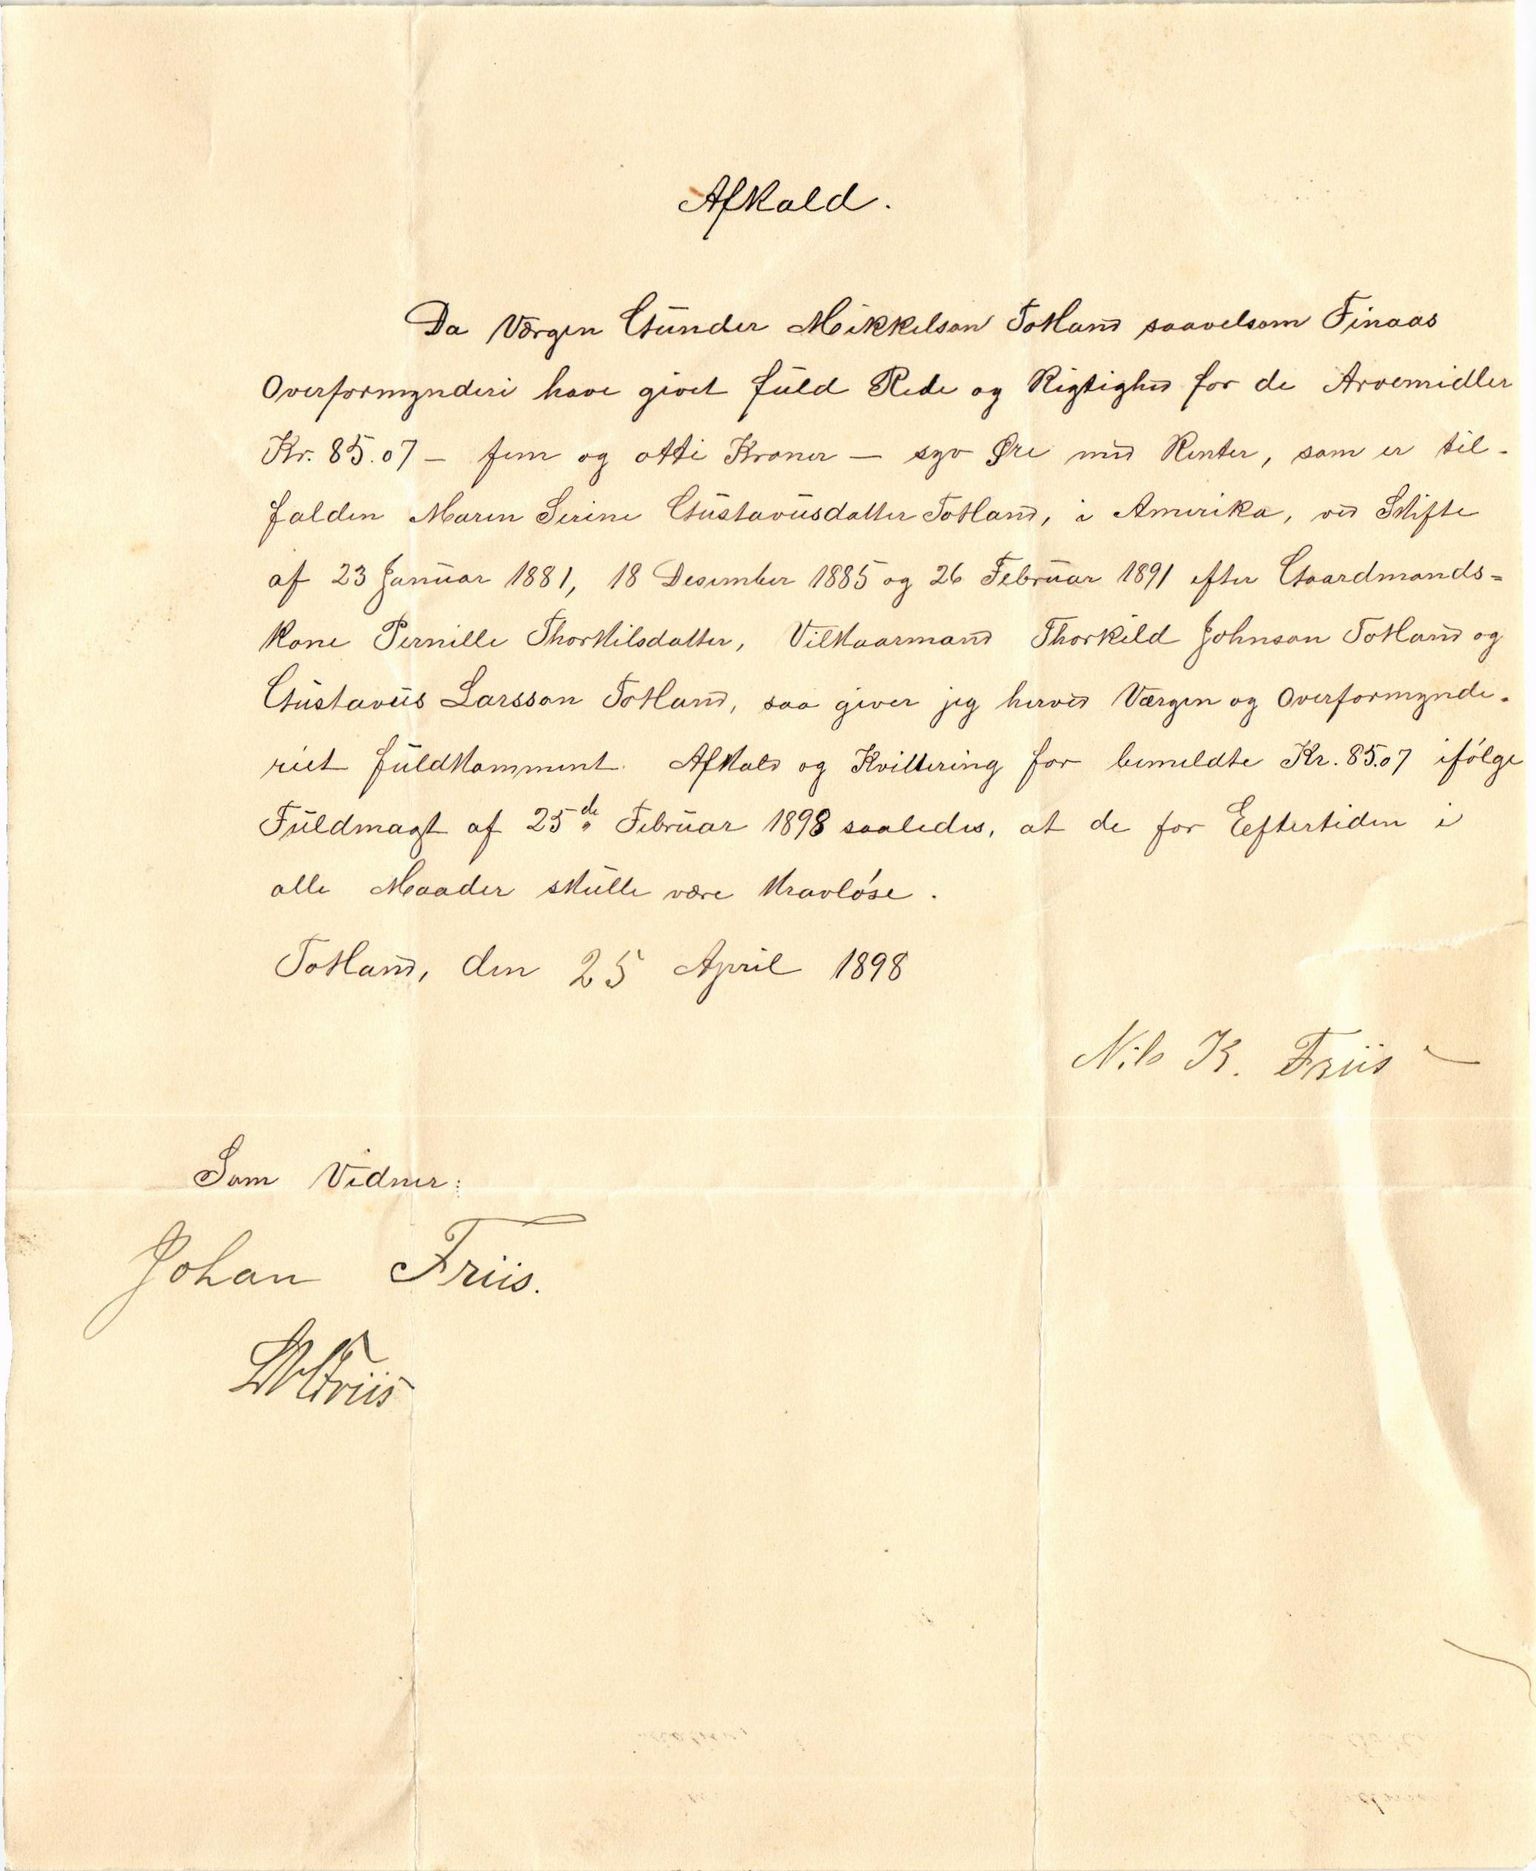 Afkald.
Da Værgen Gunder Mikkelson Totland saavelsom Finaas
Overformynderi have givet fuld Rede og Rigtighed for de Arvemidler
Kr. 85.07 – fem og otti Kroner – syv Øre med Renter, som er til-
falden Maren Serine Gustavusdatter Totland, i Amerika, ved Skifte
af 23 Januar 1881, 18 Desember 1885 og 26 Februar 1891 efter Gaardmands=
kone Pernille Thorkilsdatter, Vilkaarmand Thorkeld Johnson Totland og
Gustavus Larsson Totland, saa giver jeg herved Værgen og Overformynde-
riet fuldkomment Afkald og Kvittering for bemeldte Kr. 85.07 ifølge
Fuldmagt af 25de Februar 1898 saaledes, at de for Eeftertiden i
alle Maader skulle være kravløse.
Totland, den 25 April 1898
Nils K. Friis
Som Vidner:
Johan Friis.
Friis